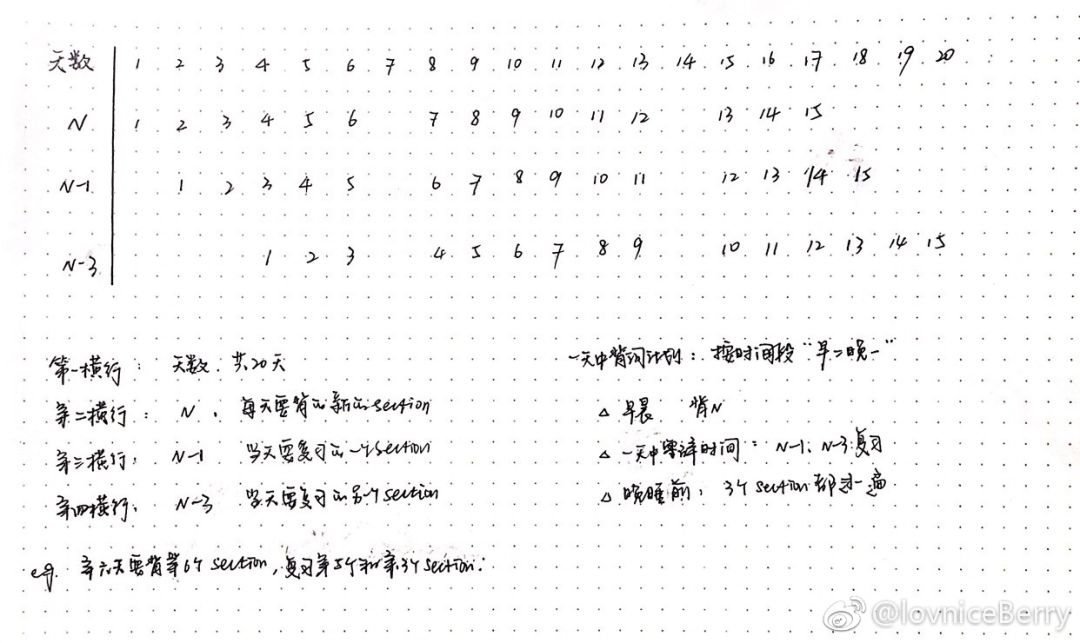 天数 1 2 3 4 5 6 7 8 9 10 11 12 13 14 15 16 17 18 19 20
N 1 2 3 4 5 6 7 8 9 10 11 12 13 14 15
N-1 1 2 3 4 5 6 7 8 9 10 11 12 13 14 15
N-3 1 2 3 4 5 6 7 8 9 10 11 12 13 14 15
第一横行: 天数.共20天
第二横行: N. 每天要背的新的section
第三横行: N-1 当天要复习的一个section
第四横行: N-3 当天要复习的另一个section
eg. 第六天要背第6个section,复习第5个和第3个section.
一天中背词计划:按时间段“早二晚一”
△ 早晨 背N
△ 一天中零碎时间:N-1、N-3复习
△ 晚睡前:3个section都过一遍
@lovniceBerry